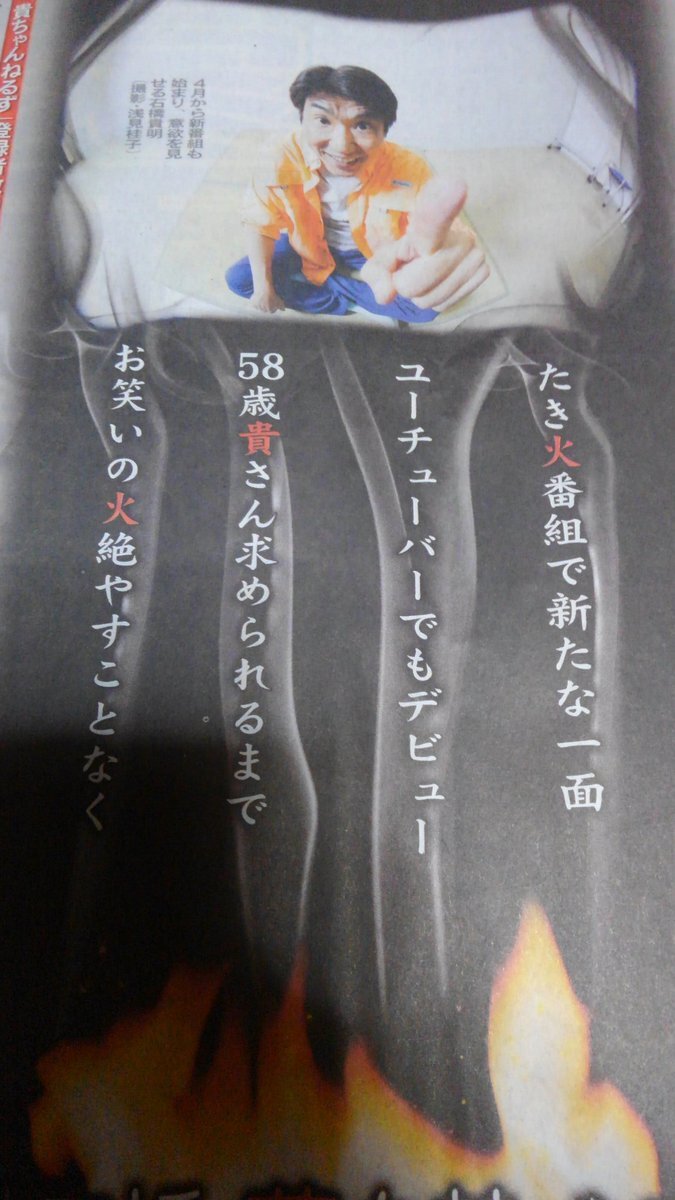 貴ちゃんねるず
4月から新番組も
始まり、意欲を見
せる石橋貴明
(撮影・浅見桂子)
たき火番組で新たな一面
ユーチューバーでもデビュー
58歳貴さん求められるまで
お笑いの火絶やすことなく